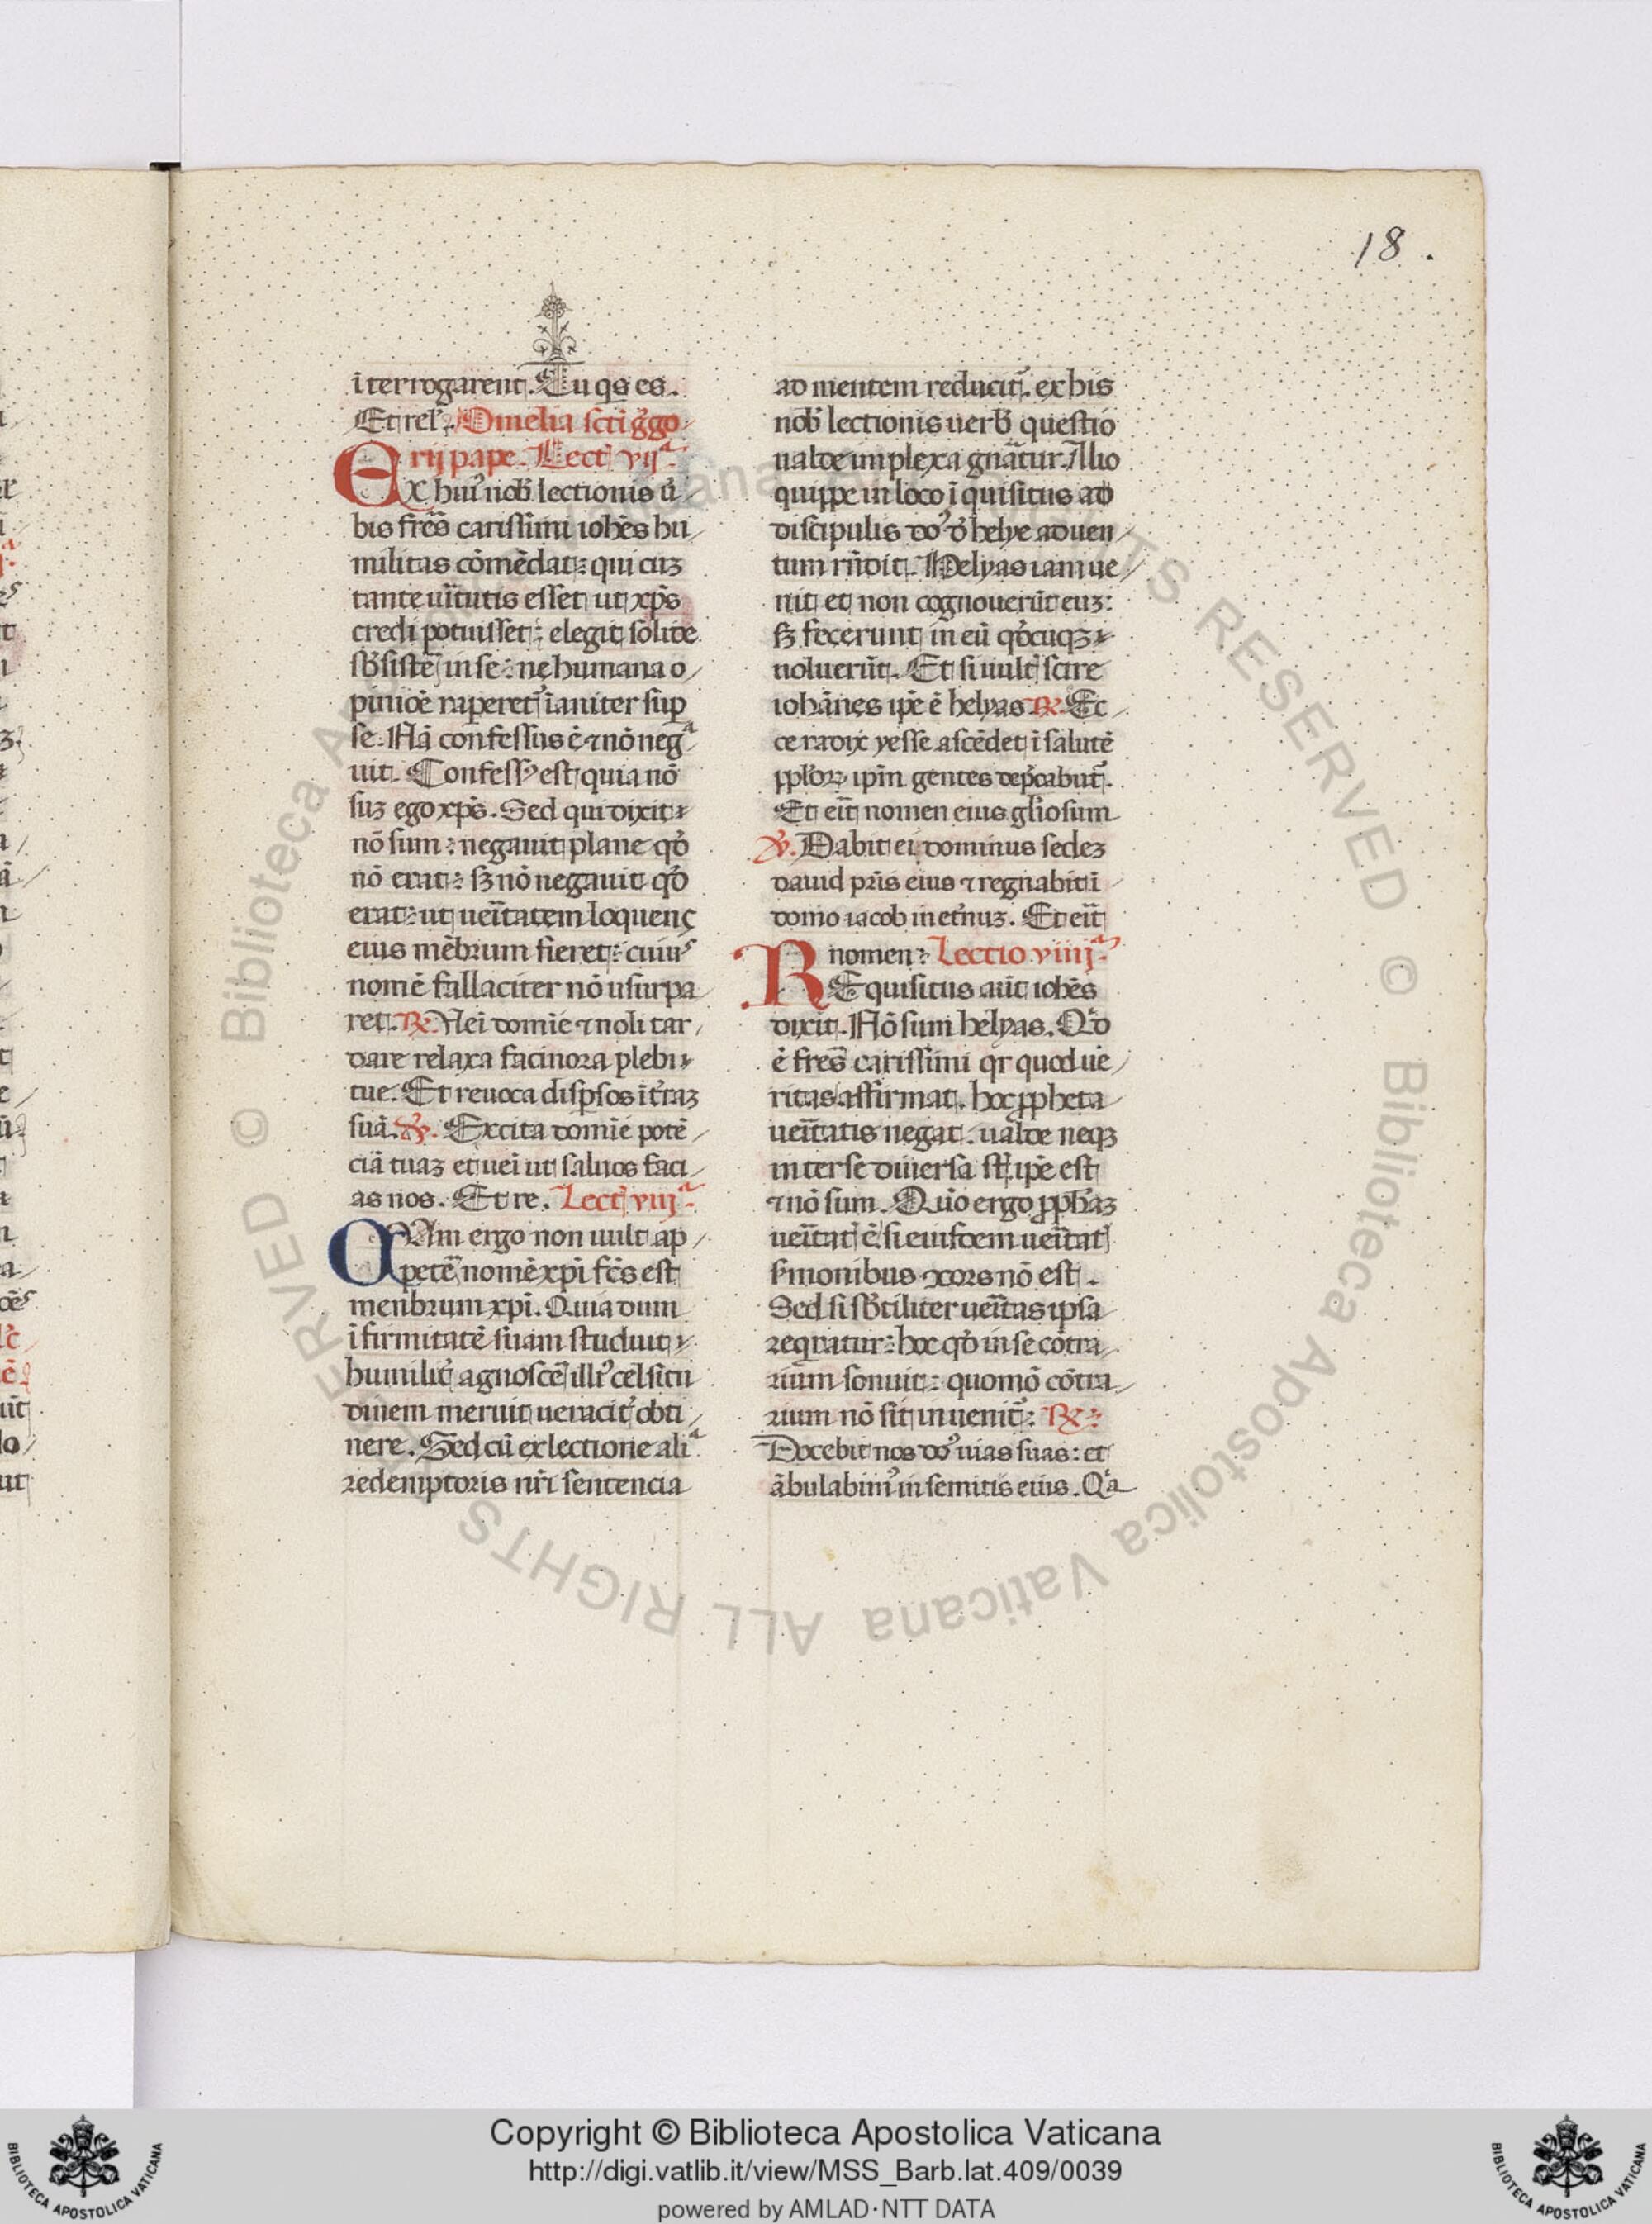 18.
īterrogarent. Tu qs es.
Et rel'. Omelia scti g̃go
rij pape. Lect̃ vijª.
Ex huiꝰ nob̃ lectionis ũ
bis frēs carissimi iohēs hu
militas cōmēdat: qui cuz
tante uĩtutis esset ut xp̄s
credi potuisset: elegit solide
sb̃sistẽ in se: ne humana o
pinioē raperet̃ ĩaniter sup
se. Nā confessus ē ⁊ nō negª
uit. Confessꝰ est quia nō
suz ego xp̄s. Sed qui dixit
nō sum: negauit plane qd̃
nō erat: sꝫ nō negauit qd̃
erat: ut ueĩtatem loquens
eius mēbrum fieret: cuius
nomē fallaciter nō usurpa
ret. ℟. Uei domīe ⁊ noli tar
dare relaxa facinora plebi
tue. Et reuoca disp̱sos ĩ t̃raz
suā. ℣. Excita domīe potē
ciā tuaz et uei ut saluos faci
as nos. Et re. Lect̃ viijª.
QUAm ergo non uult ap
petẽ nomē xp̄i fc̄s est
menbrum xp̄i. Quia dum
ĩfirmitatē suam studuit
humilit̃ agnoscẽ illiꝰ celsitu
dinem meruit ueracit̃ obti
nere. Sed cū ex lectione aliª
redemptoris nr̄i sentencia
ad mentem reducit̃. ex his
nob̃ lectionis uerb̃ questio
ualde implexa gnāt̃ur. Alio
quippe in loco ĩquisitus ad
discipulis do᷒ d̃ helye aduen
tum rñdit. Helyas iam ue
nit et non cognouerūt euz:
sꝫ fecerunt in eū qd̃cuqꝫ
uoluerūt. Et si uult̃ scire
iohānes ip̄e ē helyas. ℟. Ec
ce radix yesse ascēdet ĩ salutē
pplõꝝ ip̄m gentes dep̃cabut̃.
Et eĩt nomen eius gl̃iosum
℣. Dabit ei dominus sedez
dauid pr̄is eius ⁊ regnabit ĩ
domo iacob in et̃nuz. Et eĩt
nomen: Lectio viiijª.
REquisitus aūt iohēs
dixit. Nō sum helyas. Qd̃
ē frēs carissimi qr quod ue
ritas affirmat. hoc ꝓpheta
ueĩtatis negat. ualde neqꝫ
inter se diuersa st̃. ip̄e est
⁊ nō sum. Quō ergo ꝓph̃az
ueĩtat̃ ē si eiusdem ueĩtat̃
s̃monibus ↄcors nō est.
Sed si sb̃tiliter ueĩtas ipsa
reqratur: hoc qd̃ in se cōtra
rium sonuit: quomō cōtra
rium nō sit inuenit̃: ℟:
Docebit nos do᷒ uias suas: et
ābulabimꝰ in semitis eius. Qª
Copyright © Biblioteca Apostolica Vaticana
http://digi.vatlib.it/view/MSS_Barb.lat.409/0039
powered by AMLAD·NTT DATA
BIBLIOTECA APOSTOLICA VATICANA
BIBLIOTECA APOSTOLICA VATICANA
© Biblioteca Apostolica Vaticana ALL RIGHTS RESERVED © Biblioteca Apostolica Vaticana ALL RIGHTS RESERVED